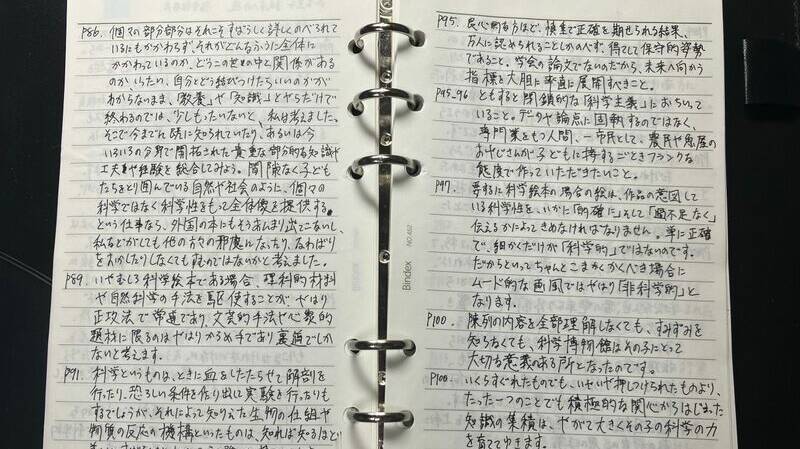 P86. 個々の部分部分はそれこそすばらしく詳しくのべられて
いるにもかかわらず、それがどんなふうに全体に
かかわっているのか、どうこの世の中と関係がある
のか、いったい、自分とどう結びつけたらいいのかが
わからないまま、「教養」や「知識」とやらだけで
終わるのでは、少しもったいないと、私は考えました。
そこで今まで既に知られていたり、あるいは今
いろいろの分野で開拓された貴重な部分的な知識や
工夫や経験を総合してみよう。間隙なく子ど
もたちをとり囲んでいる自然や社会のように、個々の
科学ではなく科学性をもって全体像を提供する。
という仕事なら、外国の本にもそうあんまり出てこないし、
私などがしても他の方々の邪魔にならず、なわばり
をおかしたりしなくてもすむのではないかと考えました。
P89. いやむしろ科学絵本である場合、理科的材料
や自然科学の手法を駆使することが、やはり
正攻法で常道であり、文芸的手法や心象的
題材に限るのはやはりからめ手であり裏面でしか
ないと考えます。
P91. 科学というものは、ときに血をしたたらせて解剖を
行ったり、恐ろしい条件を作り出し実験を行ったりも
するでしょうが、それによって知りえた生物の仕組や
物質の反応の機構といったものは、知れば知るほど
Bindex
NO.452
P95. 良心的な方ほど、慎重で正確を期せられる結果、
万人に認められることしかのべず、得てして保守的姿勢
であること。学会の論文でないのだから、未来へ向かう
指標を大胆に率直に展開すべきこと。
P95-96 ともすると閉鎖的な「科学主義」におちいって
いること。データや論点に固執するのではなく、
専門業をもつ人間、一市民として、農民や魚屋の
おやじさんが子どもに接するごときフランクな
態度で作っていただきたいこと。
P97. 要するに科学絵本の場合の絵は、作品の意図して
いる科学性を、いかに「的確に」そして「過不足なく」
伝えるかによってきめなければなりません。単に正確
で、細かくだけが「科学的」ではないのです。
だからといってちゃんとこまかくかくべき場合に
ムード的な画風ではやはり「非科学的」と
なります。
P100. 陳列の内容を全部理解しなくても、すみずみを
知らなくても、科学博物館はその子にとって
大切な意義ある所となったのです。
P100. いくらすぐれたものでも、いやいや押しつけられたものより、
たった一つのことでも積極的な関心からはじまった
知識の集積は、やがて大きくその子の科学の力
を育ててゆきます。